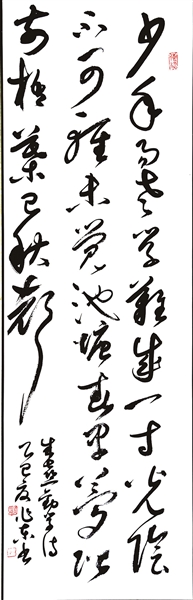 少年易老学难成一寸光阴
不可轻未觉池塘春草梦阶
前梧叶已秋声
朱熹劝学诗
乙巳夏